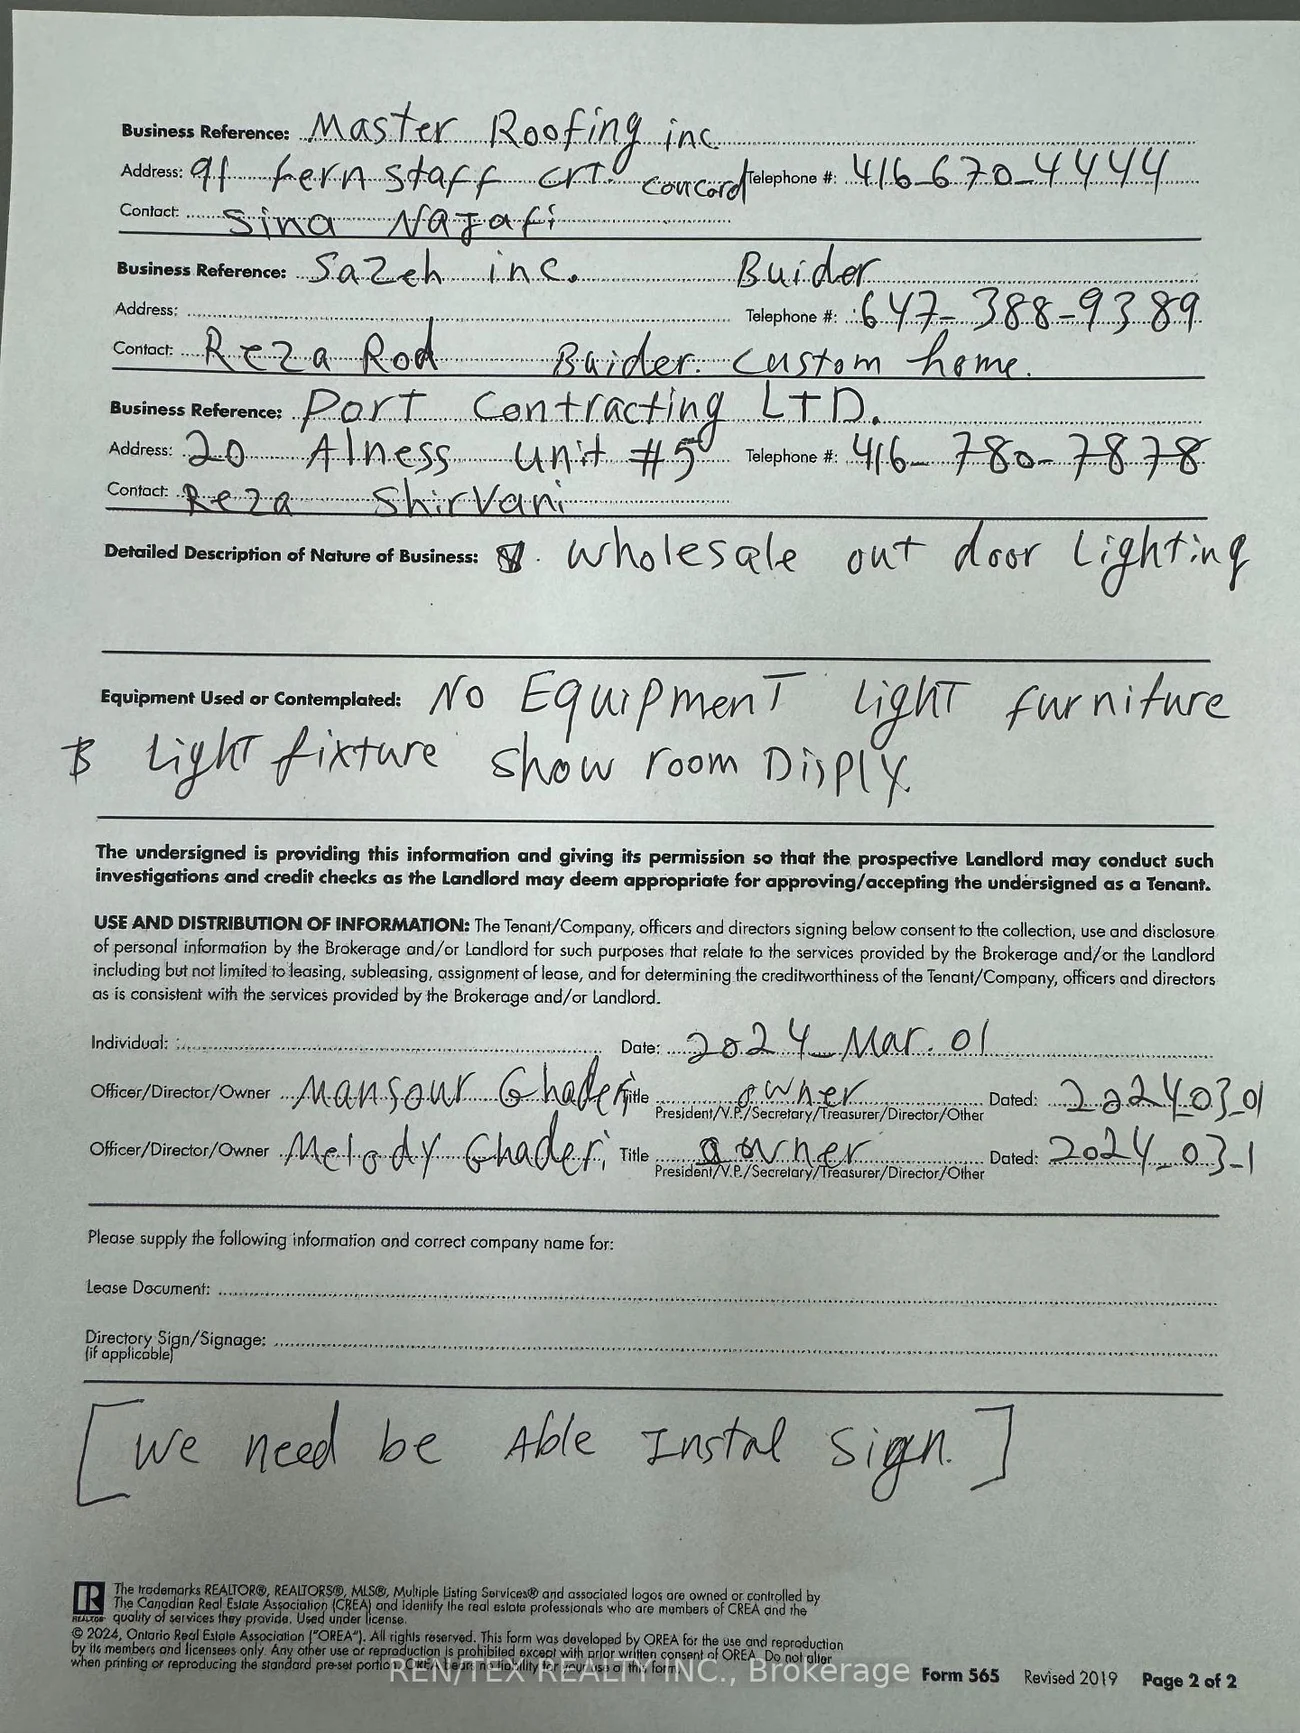 Business Reference: Master Roofing inc.
Address: 91 fernstaff crt. concord Telephone #: 416-670-4444
Contact: Sina Najafi
Business Reference: Sazeh inc. Buider
Address: Telephone #: 647-388-9389
Contact: Reza Rod Buider. Custom home.
Business Reference: Port Contracting LTD.
Address: 20 Alness unit #5 Telephone #: 416-780-7878
Contact: Reza Shirvani
Detailed Description of Nature of Business: wholesale out door Lighting
Equipment Used or Contemplated: No Equipment light furniture
light fixture show room Disply.
The undersigned is providing this information and giving its permission so that the prospective Landlord may conduct such
investigations and credit checks as the Landlord may deem appropriate for approving/accepting the undersigned as a Tenant.
USE AND DISTRIBUTION OF INFORMATION: The Tenant/Company, officers and directors signing below consent to the collection, use and disclosure
of personal information by the Brokerage and/or Landlord for such purposes that relate to the services provided by the Brokerage and/or the Landlord
including but not limited to leasing, subleasing, assignment of lease, and for determining the creditworthiness of the Tenant/Company, officers and directors
as is consistent with the services provided by the Brokerage and/or Landlord.
Individual: Date: 2024_Mar.01
Officer/Director/Owner Mansour Ghaderi Title owner Dated: 2024_03_01
President/V.P./Secretary/Treasurer/Director/Other
Officer/Director/Owner Melody Ghaderi Title owner Dated: 2024_03-1
President/V.P./Secretary/Treasurer/Director/Other
Please supply the following information and correct company name for:
Lease Document:
Directory Sign/Signage:
(if applicable)
[We need be Able Instal Sign.]
R
REALTOR®
The trademarks REALTOR®, REALTORS®, MLS®, Multiple Listing Services® and associated logos are owned or controlled by
The Canadian Real Estate Association (CREA) and identify the real estate professionals who are members of CREA and the
quality of services they provide. Used under license.
© 2024, Ontario Real Estate Association ("OREA"). All rights reserved. This form was developed by OREA for the use and reproduction
by its members and licensees only. Any other use or reproduction is prohibited except with prior written consent of OREA. Do not alter
when printing or reproducing the standard pre-set portion. OREA bears no liability for your use of this form.
REN/TEX REALTY INC., Brokerage
Form 565 Revised 2019 Page 2 of 2